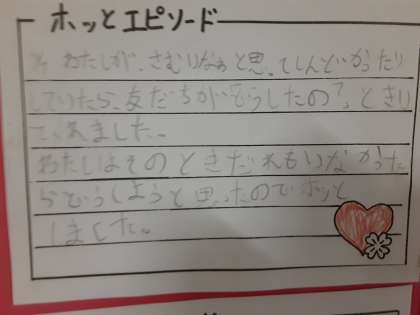 ホッとエピソード
わたしが、さむいなぁと思ってしんどかったり
していたら、友だちが「どうしたの?」ときい
てくれました。
わたしはそのときだれもいなかった
らどうしようと思ったのでホッと
しました。